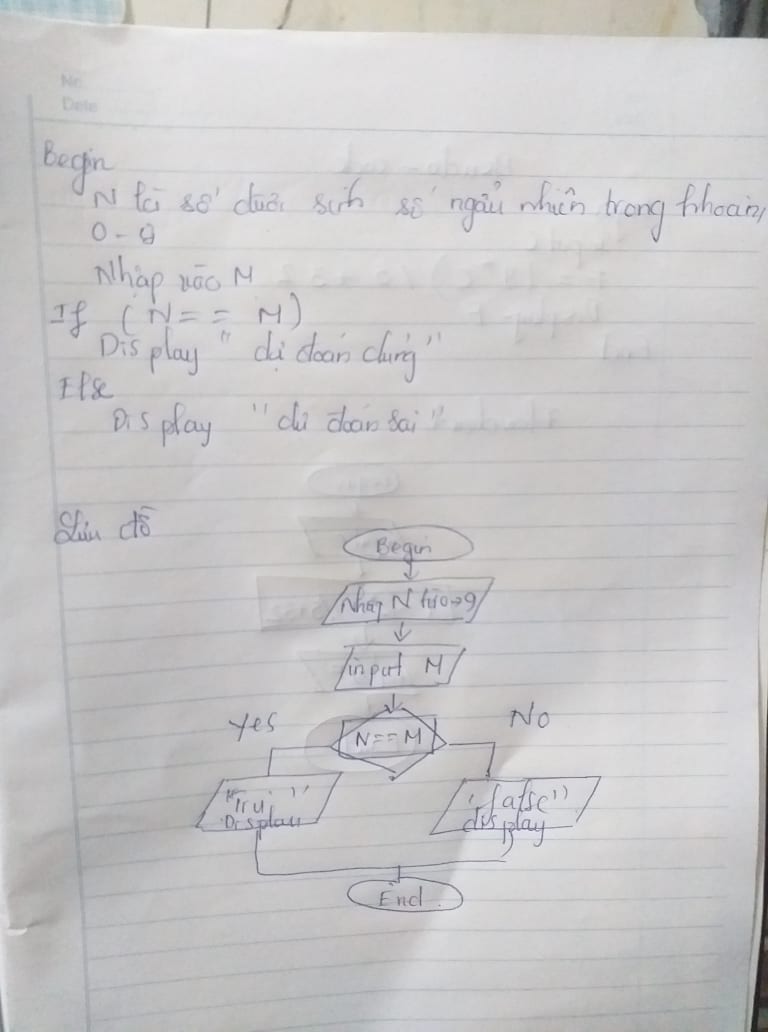 No
Date
Begin
N là số được sinh số ngẫu nhiên trong khoản
0-9
Nhập vào M
If (N== M)
Display "dự đoán đúng"
Else
Display "dự đoán sai"
Lưu đồ
Begin
Nhập N từ 0→9
input M
Yes
No
N==M
"Tru"
Display
"false"
display
End